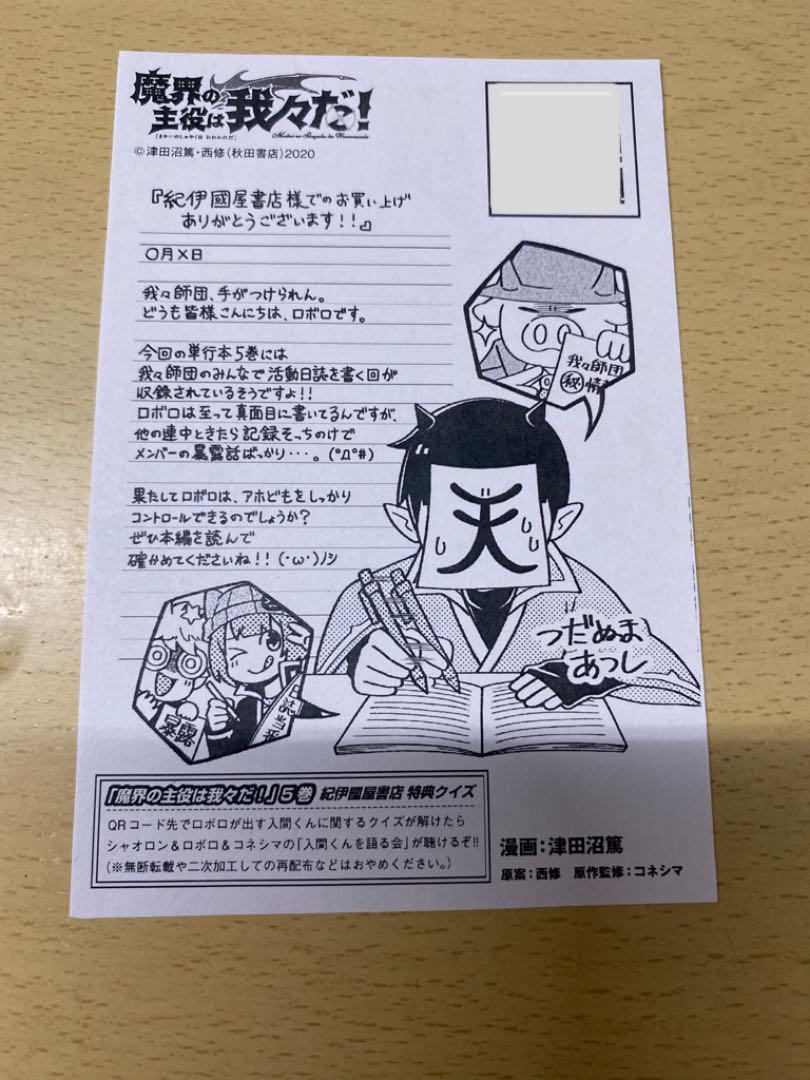 魔界の
主役は
我々だ!
[まかいのしゅやくは われわれだ]
Makai no Shuyaku ha Warewareda
©津田沼篤・西修(秋田書店)2020
『紀伊國屋書店様でのお買い上げ
ありがとうございます!!』
〇月×日
我々師団、手がつけられん。
どうも皆様こんにちは、ロボロです。
今回の単行本5巻には
我々師団のみんなで活動日誌を書く回が
収録されているそうですよ!!
ロボロは至って真面目に書いてるんですが、
他の連中ときたら記録そっちのけで
メンバーの暴露話ばっかり・・・。(°Д°#)
果たしてロボロは、アホどもをしっかり
コントロールできるのでしょうか?
ぜひ本編を読んで
確かめてくださいね!!(・ω・)ノシ
我々師団
㊙情
天
つだぬま
あつし
暴露
誌当番
「魔界の主役は我々だ!」5巻 紀伊國屋書店 特典クイズ
QRコード先でロボロが出す入間くんに関するクイズが解けたら
シャオロン&ロボロ&コネシマの「入間くんを語る会」が聴けるぞ!!
(※無断転載や二次加工しての再配布などはおやめください。)
漫画:津田沼篤
原案:西修 原作監修:コネシマ